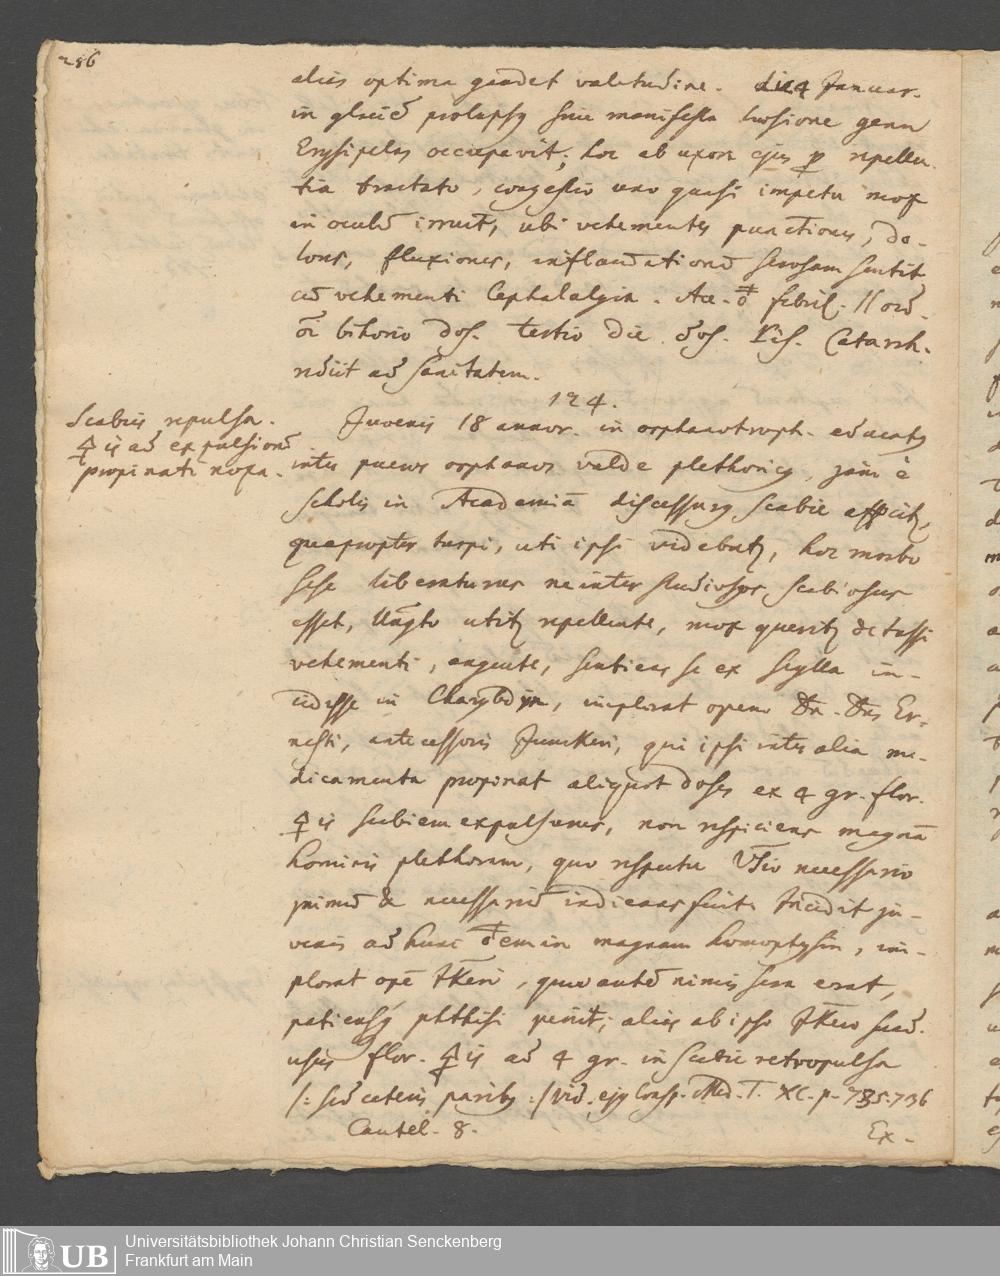 286
alias optima gaudet valetudine. die 4 Januar.
in glacie prolapsq sine manifesta laesione genu
Erysipelas occupavit; hoc ab uxore ejus p repellen
tia tractato, congestio vero quasi impetu mox
in oculu irruit, ubi vehementes punctiones, do-
lores, fluxiones, inflammationem serosam sentit
cum vehementi Cephalalgia.
bihorio dos. tertio die Catarrh.
rediit ad sanitatem.
124.
Scabies repulsa.
🜍 is ad expulsionem
propinati noxa.
Juvenis 18 annor. in orphanotroph. educatq
inter pueros orphanos valde plethoricq, jam e
scholis in Academia discessurq scabie afficit,
quapropter turpi, uti ipsi videbat, hoc morbo
sese liberaturus ne inter studiosos scabiosus
esset, Ungto utit repellente, mox querit de tussi
vehementi, angente, sentiens se ex Scylla in-
cidisse in Charybdin, implorat opem Dn. Drs Er-
nesti, antecessoris Junckeri, qui ipsi inter alia me-
dicamenta propinat aliquot doses ex 4 gr. flor.
🜍 is scabiem expulsurus, non respiciens magna
hominis plethoram, quo respectu VSio necessario
primu & necessariu indicans fuit. Incidit ju-
venis ad hunc in magnam haemoptysin, im-
plorat ope Jkeri, quae autem nimis sera erat,
patiensq phthisi periit; alias ab ipso Jkero suad.
usus flor. 🜍 is ad 4 gr. in scabie retropulsa
/: sed ceteris paribq :/ vid. ejq Consp. Med. T. XC. p. 735.736
Cautel. 8.
Ex-
UB Universitätsbibliothek Johann Christian Senckenberg
Frankfurt am Main